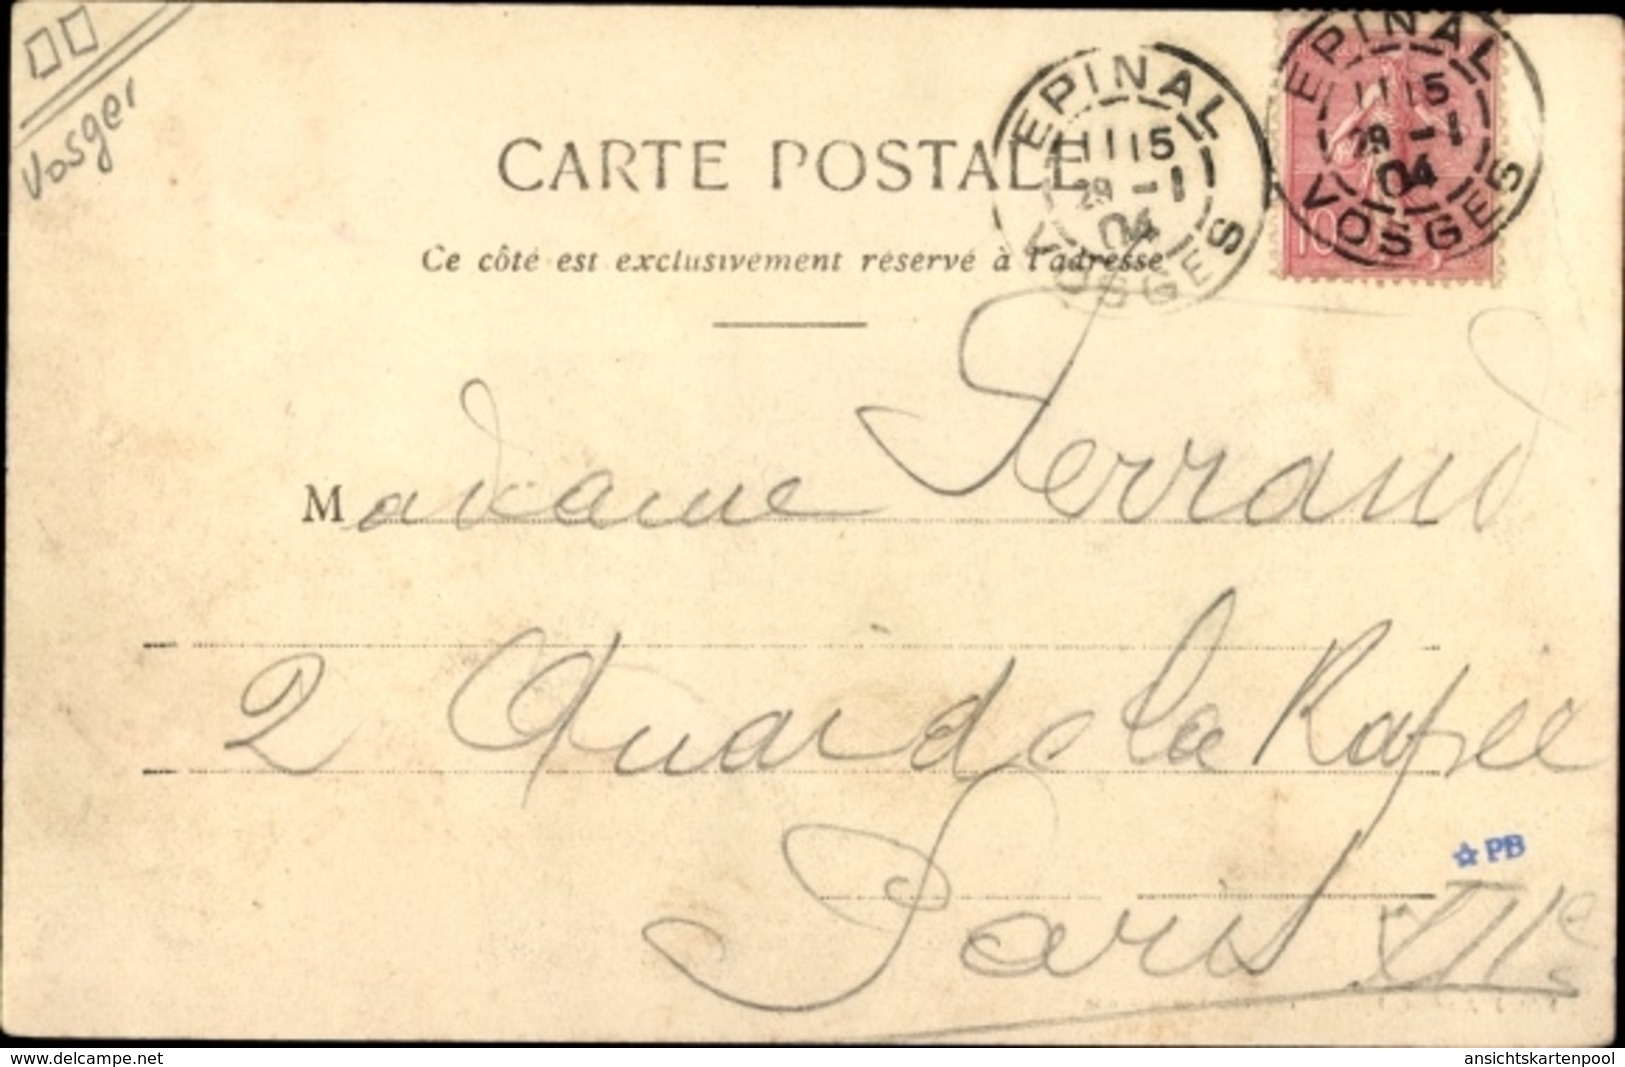 Vosges
EPINAL
11 15
29 -1
04
VOSGES
EPINAL
11 15
29 -1
04
VOSGES
10
CARTE POSTALE
Ce côté est exclusivement réservé à l'adresse
Madame Ferrand
2 Quai de la Rapée
Paris XIIe
☆ PB
www.delcampe.net
ansichtskartenpool